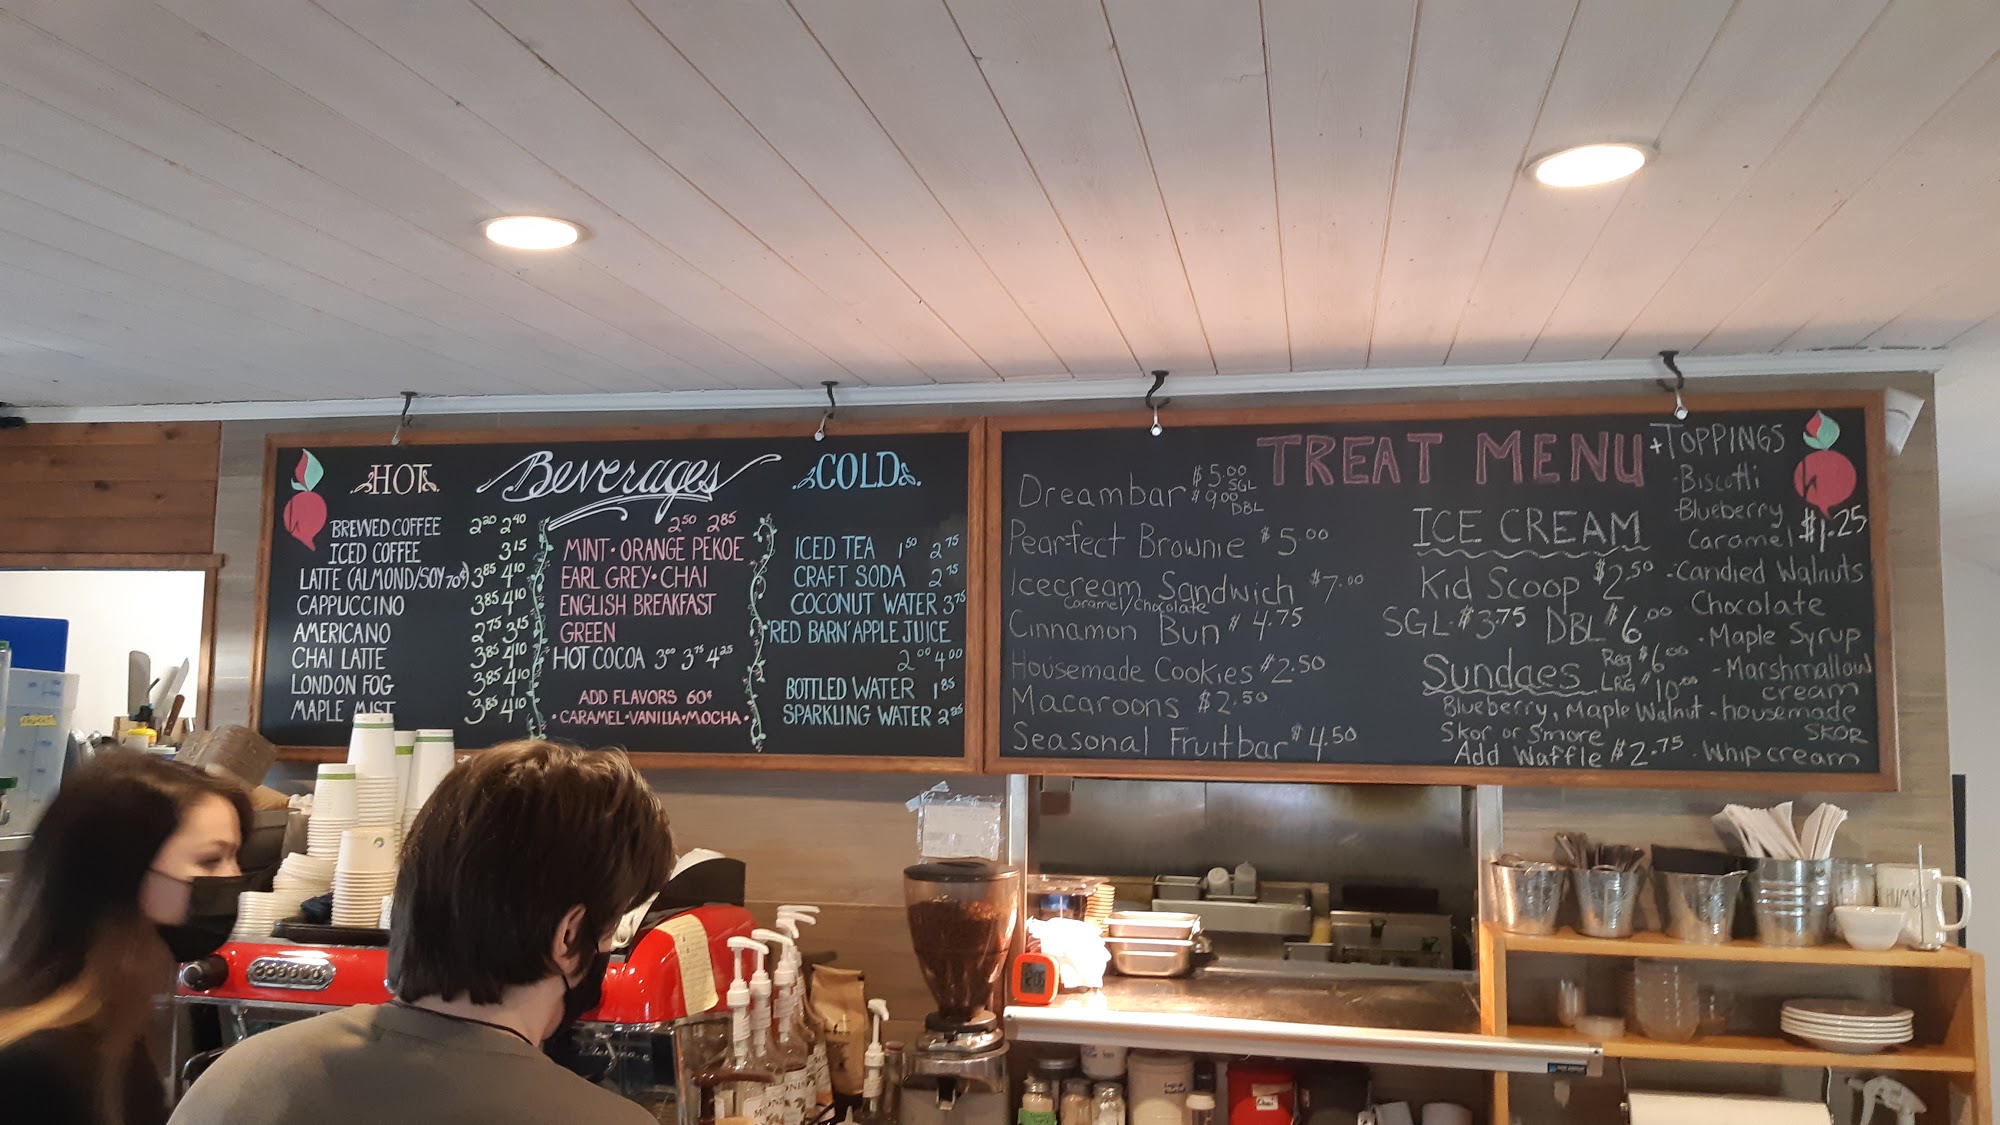 HOT
Beverages
COLD
BREWED COFFEE 2²⁰ 2⁴⁰
ICED COFFEE 3¹⁵
LATTE (ALMOND/SOY 70¢) 3⁸⁵ 4¹⁰
CAPPUCCINO 3⁸⁵ 4¹⁰
AMERICANO 2⁷⁵ 3¹⁵
CHAI LATTE 3⁸⁵ 4¹⁰
LONDON FOG 3⁸⁵ 4¹⁰
MAPLE MIST 3⁸⁵ 4¹⁰
2⁵⁰ 2⁸⁵
MINT • ORANGE PEKOE
EARL GREY • CHAI
ENGLISH BREAKFAST
GREEN
HOT COCOA 3⁰⁰ 3⁷⁵ 4²⁵
ADD FLAVORS 60¢
• CARAMEL • VANILLA • MOCHA •
ICED TEA 1⁵⁰ 2⁷⁵
CRAFT SODA 2⁷⁵
COCONUT WATER 3⁷⁵
'RED BARN' APPLE JUICE
2⁰⁰ 4⁰⁰
BOTTLED WATER 1⁸⁵
SPARKLING WATER 2²⁵
TREAT MENU
Dreambar $5.00 SGL
$9.00 DBL
Pearfect Brownie $5.00
Icecream Sandwich $7.00
Caramel/Chocolate
Cinnamon Bun $4.75
Housemade Cookies $2.50
Macaroons $2.50
Seasonal Fruitbar $4.50
ICE CREAM
Kid Scoop $2.50
SGL $3.75 DBL $6.00
Sundaes Reg $6.00
LRG $10.00
Blueberry, Maple Walnut
Skor or S'more
Add Waffle $2.75
+TOPPINGS
- Biscotti
- Blueberry
Caramel $1.25
- Candied Walnuts
Chocolate
- Maple Syrup
- Marshmallow
cream
- housemade
SKOR
- Whip cream
HUMBLE